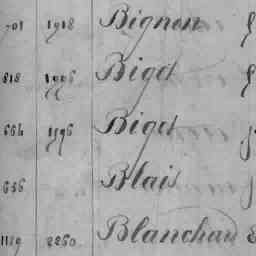 701 1918 Bignon
818 1996 Bigot
664 1196 Bigot
656 Blais
1189 2260 Blanchard